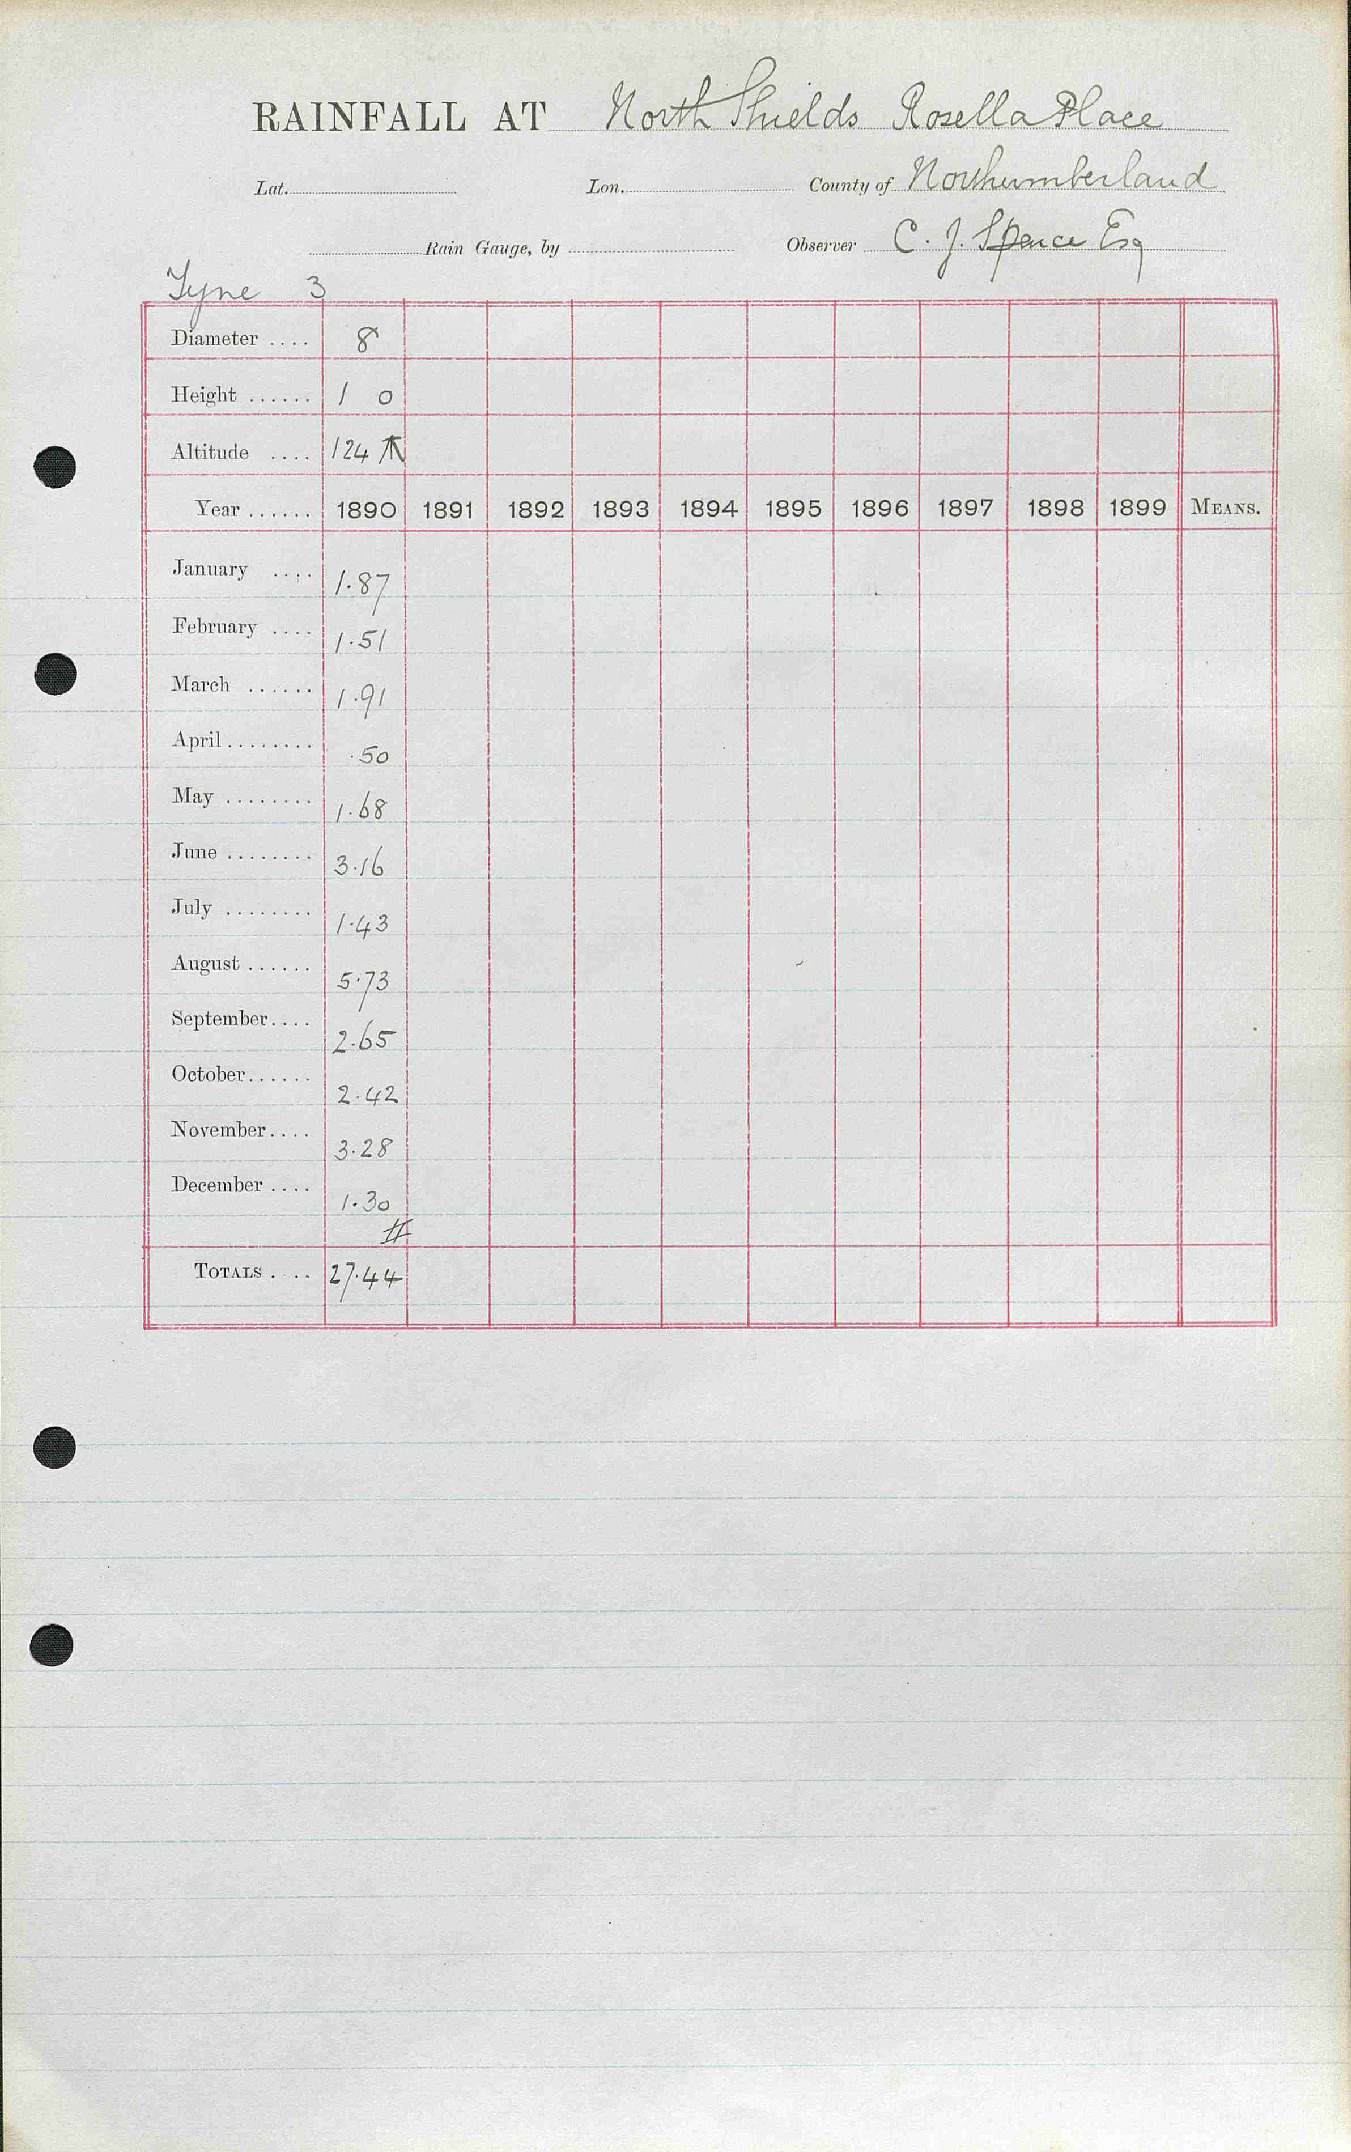 RAINFALL AT North Shields Rosella Place
Lat. Lon. County of Northumberland
Rain Gauge, by Observer C. J. Spence Esq
Tyne 3
Diameter .... 8
Height ...... 1 0
Altitude .... 124
Year ...... 1890 1891 1892 1893 1894 1895 1896 1897 1898 1899 MEANS.
January .... 1.87
February .... 1.51
March ...... 1.91
April ........ .50
May ........ 1.68
June ........ 3.16
July ........ 1.43
August ...... 5.73
September.... 2.65
October...... 2.42
November.... 3.28
December .... 1.30
#
TOTALS .... 27.44